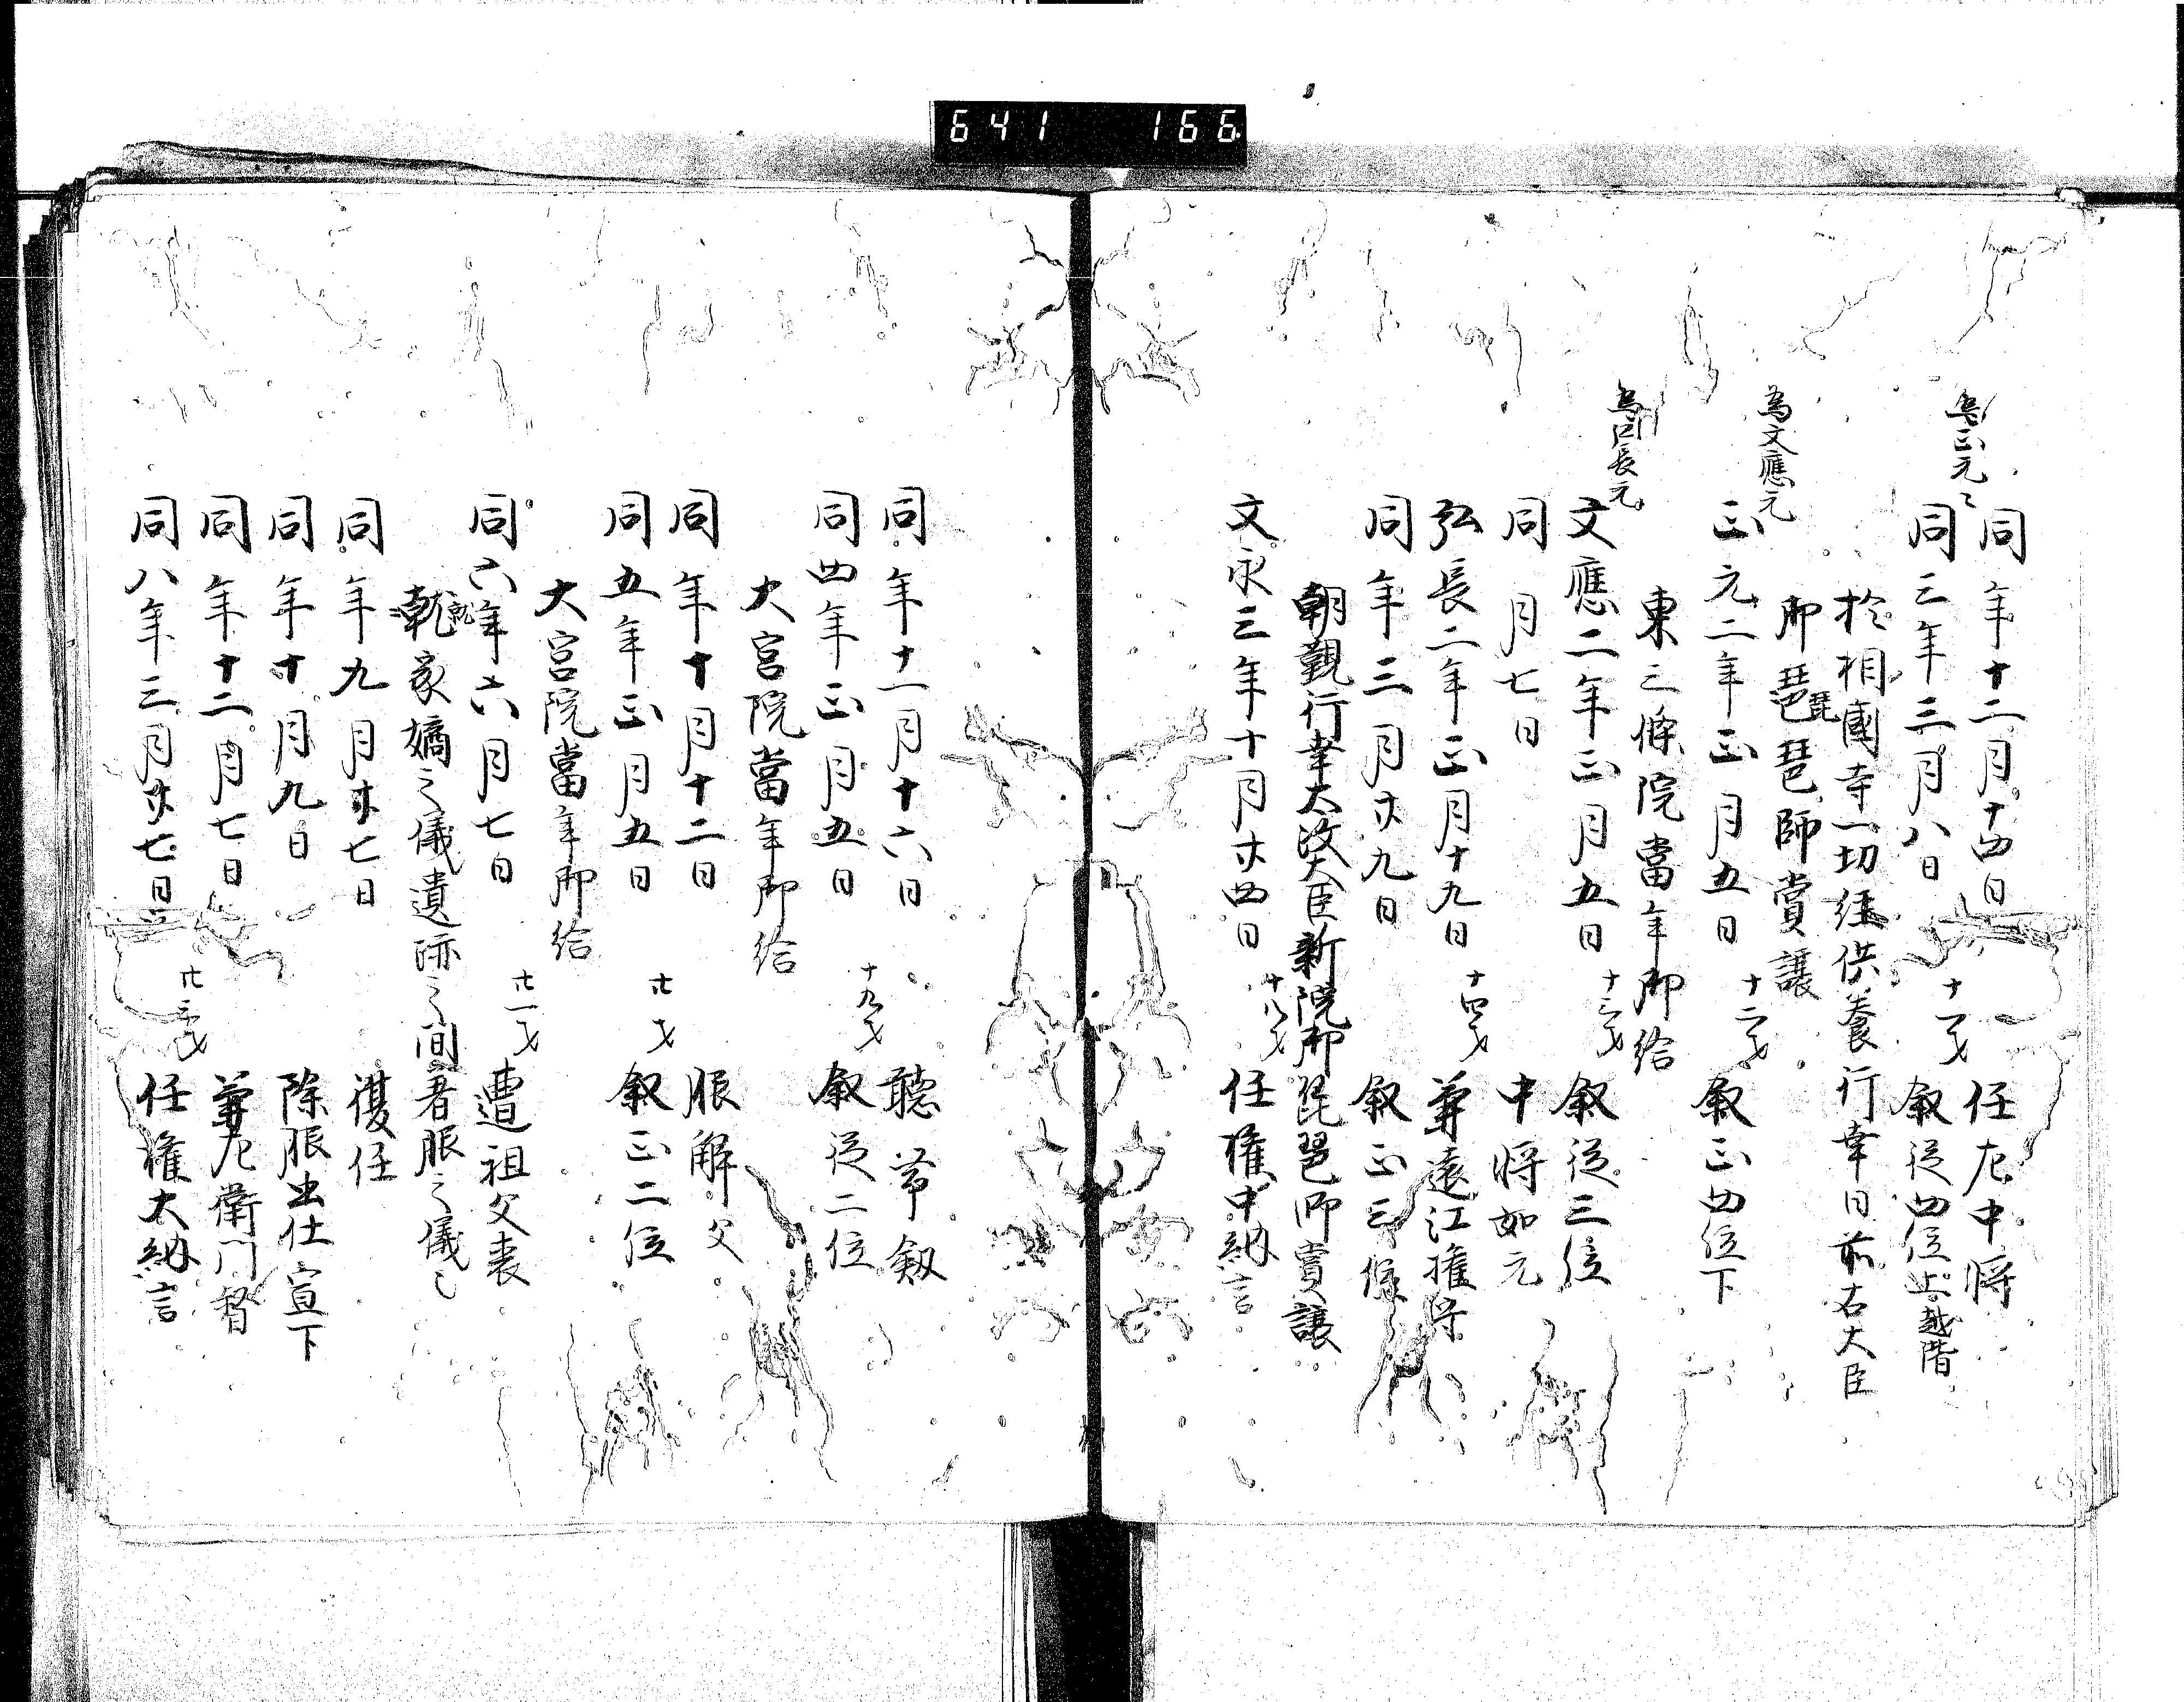 641 166
同年十二月十四日 任左中将
為正元ミ
同三年三月八日 十一才 叙従四位上越階
於相國寺一切経供養行幸日前右大臣
御琵琶師賞譲
為文應元
正元二年正月五日 十二才 叙正四位下
東二條院當年御給
為弘長元
文應二年正月五日 十三才 叙従三位
同月七日 中将如元
弘長二年正月十九日 十四才 兼遠江権守
同年三月廿九日 叙正三位
朝覲行幸太政大臣新院御琵琶師賞譲
文永三年十月廿四日 十八才 任権中納言
同年十一月十六日 聴帯剱
同四年正月五日 十九才 叙従二位
大宮院當年御給
同年十月十二日 服解父
同五年正月五日 廿才 叙正二位
大宮院當年御給
同六年六月七日 廿一才 遭祖父喪
就家嫡之儀遺跡之間着服之儀也
同年九月廿七日 復任
同年十月九日 除服出仕宣下
同年十二月七日 兼左衛門督
同八年三月廿七日 廿三才 任権大納言